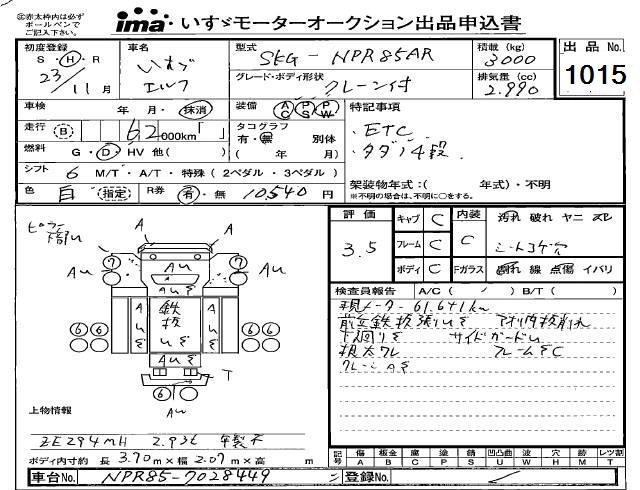 ㊟赤太枠内は必ず
ボールペンで
ご記入下さい。
ima いすゞモーターオークション出品申込書
初度登録 S・H・R 23年 11月
車名 いすゞ エルフ
型式 SKG-NPR85AR
積載(kg) 3000
グレード・ボディ形状 クレーン付
排気量(cc) 2.990
出品 No. 1015
車検 年・月・抹消
装備 AC PS PW
特記事項
走行 (B) 62,000km
タコグラフ 有・無 別体
( 年 月)
・ETC
・タダノ4段
燃料 G・D・HV 他( )
シフト 6 M/T・A/T・特殊(2ペダル・3ペダル)
架装物年式:( 年式)・不明
※不明の場合は、不明に○をする。
色 白 (指定) R券 有・無 10,540円
評価 3.5
キャブ C
フレーム C
ボディ C
内装 C
汚れ 破れ ヤニ スレ
シートコゲ穴
Fガラス 割れ 線 点傷 イバリ
検査員報告 A/C( ) B/T( )
現メーター61,641km
サイドガード
クレーンAき
ピラー
A
A
7
7
Aω
Aω
鉄板
6 6
6 6
T
6
Aω
上物情報
ZE294MH 2.93t
ボディ内寸約 長 3.70m×幅 2.07m×高 m
記号 傷A 板金B 腐C 塗P 錆S 凹凸曲U ワレW 穴H 跡M レツ割T
車台No. NPR85-7028449
登録No.